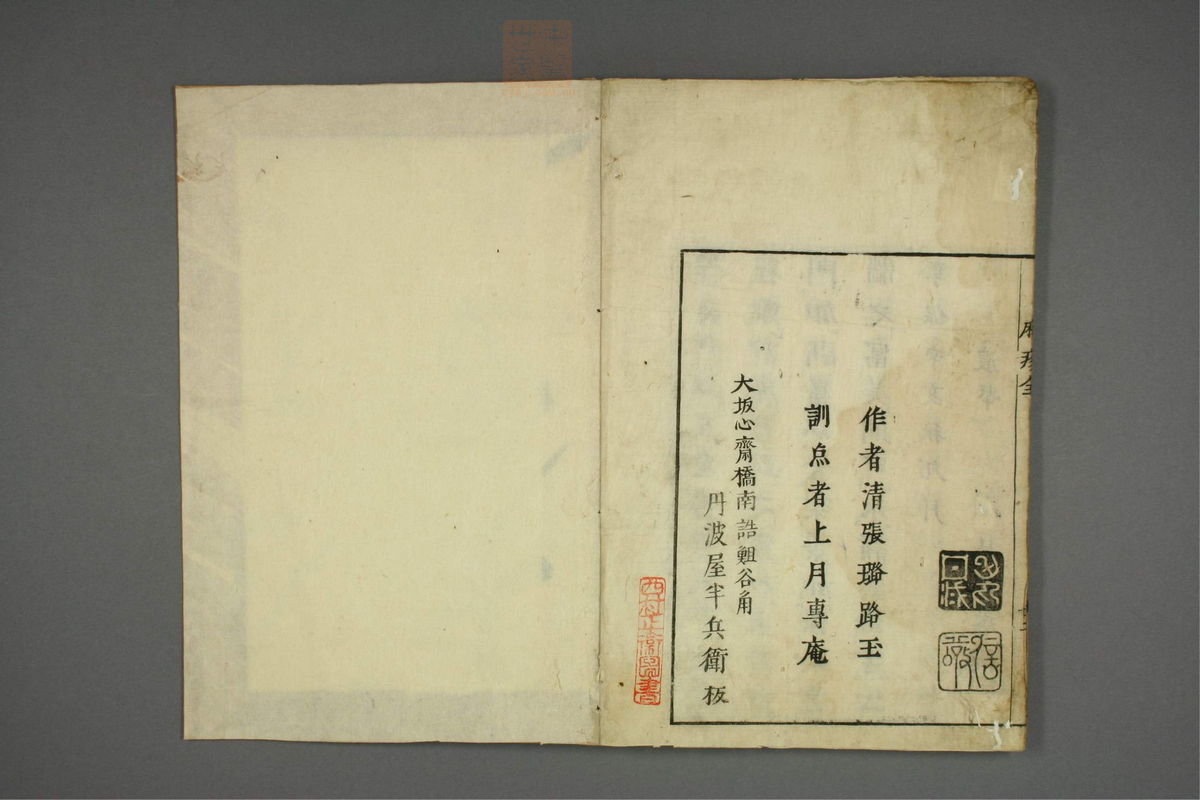 麻疹全
作者清張璐路玉
訓点者上月專庵
大坂心齋橋南詰鰻谷角
丹波屋半兵衛板